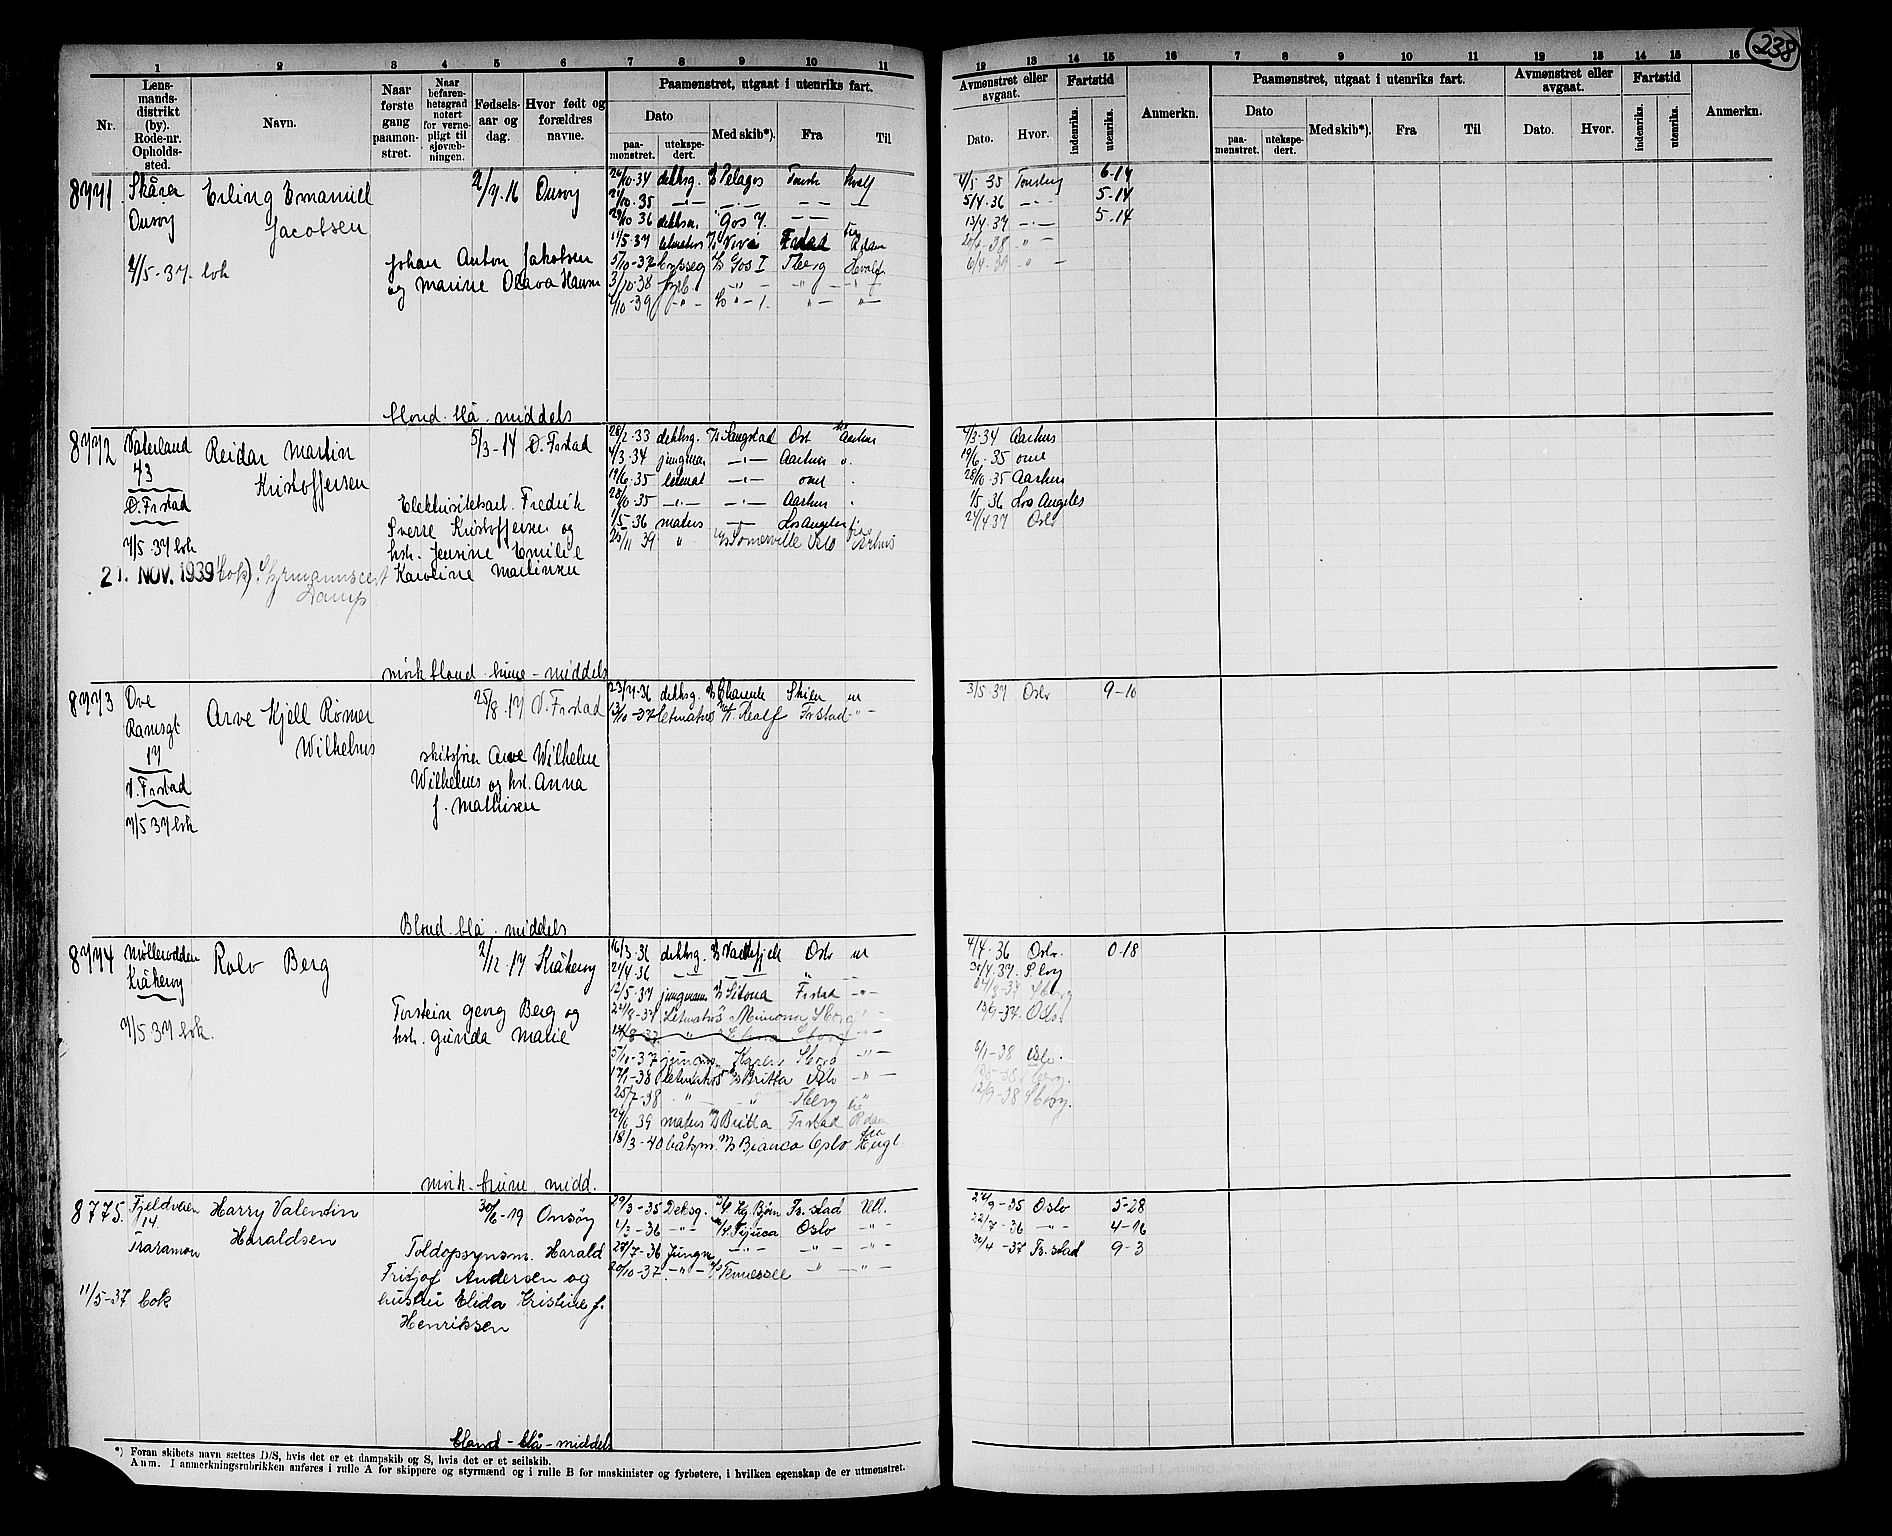 238
1 2 3 4 5 6 7 8 9 10 11
Nr.
Lensmandsdistrikt (by). Rode-nr. Opholdssted.
Navn.
Naar første gang paamønstret.
Naar befarenhetsgrad notert for vernepligt til sjøvæbningen.
Fødselsaar og dag.
Hvor født og forældres navne.
Paamønstret, utgaat i utenriks fart.
Dato
paamønstret.
utekspedert.
Med skib*).
Fra
Til
12 13 14 15 16 7 8 9 10 11 12 13 14 15 16
Avmønstret eller avgaat.
Dato.
Hvor.
Fartstid
indenriks.
utenriks.
Anmerkn.
Paamønstret, utgaat i utenriks fart.
Dato
paamønstret.
utekspedert.
Med skib*).
Fra
Til
Avmønstret eller avgaat.
Dato.
Hvor.
Fartstid
indenriks.
utenriks.
Anmerkn.
8771. Skåra Onsøy
Erling Emanuel Jacobsen
2/7.16 Onsøy
Johan Anton Jakobsen
og Marine Olava Hansen
4/5-37. bok
26/10.34 dekksg. Pelagos Tønsb. Hvalf
/10.35 -"- -"- -"-
29/10 36 dekksm. Gos 7.
11/5.37 letmatros Viva Frstad R.dam
5/10-37 Gos I Tberg Hvalf
3/10-38 fyrb.
/10-39
4/5 35 Tønsberg 6-14
5/4.36 -"- 5-14
13/4.37 -"- 5-14
/6-38 "
6/4.39 "
blond. blå. middels
8772 Vaterland 43 Ø. Frstad
Reidar Martin Kristoffersen
5/3-14 Ø. Frstad
Elektrisitetsarb. Fredrik
Sverre Kristoffersen og
hst. Jensine Emilie
Karoline Martinsen
7/5.37 bok
21. NOV. 1939 (bok). Styrmannscert
Damp
28/2-33 dekksg. Sangstad Osl. Aarhus
4/3.34 jungman -"- Aarhus
19/6.35 letmat -"- omr
28/10.35 -"- -"- Aarhus
1/5-36 matros -"- Los Angeles
25/11 39 " Somerville Oslo Århus
4/3-34 Aarhus
19/6.35 omr
28/10.35 Aarhus
1/5.36 Los Angeles
24/4 37 Oslo
mørk blond. brune - middels
8773 Ove Ramsgt. 17 V. Frstad
Arve Kjell Rømer Wilhelms
25/8.17 V. Frstad
skibsfører Arve Wilhelm
Wilhelms og hst. Anna
f. Mathisen
7/5 37 bok
23/7-36 dekksg. Charente Skien ut
13/10-37 letmatros Realf Frstad -"-
3/5-37 Oslo 9-10
Blond. blå. middels
8774 Møllerodden Kråkerøy
Rolv Berg
2/12.17 Kråkerøy
Torstein Georg Berg og
hst. Gunda Marie
7/5 37 bok.
16/3-36 dekksg. Oslo ut
24/4.36
12/5.37 jungmann Sitona Frstad -"-
24/8-37 Letmatros Mimona Sborg
14/8-37
5/10-37 jungm. Karlis Sborg -"-
17/1-38 Letmatros Britta Oslo -"-
25/7-38 " " Tberg "
29/6 39 matros Britta Frstad R.dam
18/3-40 båtsm. Bianca Oslo Engl
4/4-36 Oslo. 0-18
30/4.37. Sborg
13/9-37. Oslo
8/1-38 Oslo.
12/9-38 Sborg.
mørk. brune. midd.
8775. Fjeldveien 14. Traramon
Harry Valentin Haraldsen
30/6-19 Onsøy
Toldopsynsm. Harald
Fritjof Andersen og
hustru Elida Kristine f.
Henriksen
11/5-37 bok
29/3-35 Deksg. Kg Bjørn Fr.stad Utl.
1/3-36 -"- Tijuca Oslo -"-
28/7-36 Jungm -"- -"- -"-
20/10-37. -"- Tennessee -"- -"-
24/9-35 Oslo 5-28
22/7-36 -"- 4-16
30/4-37 Fr.stad 9-3
blond - blå - middels
*) Foran skibets navn sættes D/S, hvis det er et dampskib og S, hvis det er et seilskib.
Anm. I anmerkningsrubrikken anføres i rulle A for skippere og styrmænd og i rulle B for maskinister og fyrbøtere, i hvilken egenskap de er utmønstret.